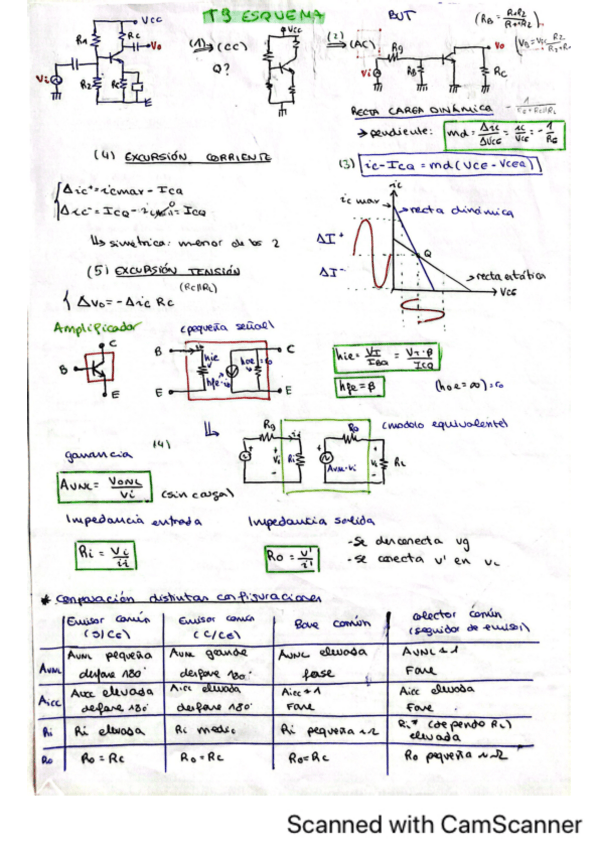 T9 ESQUEMA
BUT
VCC
Rc
Vo
Vi
R2
(1) → (CC)
Q?
VCC
(2) → (AC)
Rg
Vi
RB
Vo
Rc
RECTA CARGA DINÁMICA
→ pendiente: md = Δic/ΔVCE = ic/VCE = -1/
(4) EXCURSIÓN CORRIENTE
(3) ic - ICQ = md (VCE - VCEQ)
Δic+ = icmax - ICQ
= ICQ
↳ simétrica: menor de los 2
ic
ic max
→ recta dinámica
ΔI+
ΔI-
Q
→ recta estática
VCE
(5) EXCURSIÓN TENSIÓN
(RC||RL)
ΔVo = -Δic Rc
Amplificador
(pequeña señal)
B
C
E
B
hie
C
E
E
hie = VT/IBQ = VT·β/ICQ
hfe = β
(hoe = ∞) = ro
(modelo equivalente)
Rg
ii
Vi
Ri
Ro
AVNL·Vi
RL
ganancia
AVNL = VONL/Vi (sin carga)
Impedancia entrada
Impedancia salida
Ri = Vi/ii
Ro = v'/i'
- Se desconecta vg
- se conecta v' en
* comparación distintas configuraciones
Emisor común (S/CE)
Emisor común (C/CE)
Base común
colector común (seguidor de emisor)
AVNL
AVNL pequeña desfase 180°
AVNL grande desfase 180°
AVNL elevada fase
AVNL ≈ 1 Fase
Aicc
Aicc elevada desfase 180°
Aicc elevada desfase 180°
Aicc ≈ 1 Fase
Aicc elevada Fase
Ri
Ri elevada
Ri medio
Ri pequeña ≈ Ω
Ri* (depende RL) elevada
Ro
Ro = Rc
Ro = Rc
Ro = Rc
Ro pequeña ≈ Ω
Scanned with CamScanner